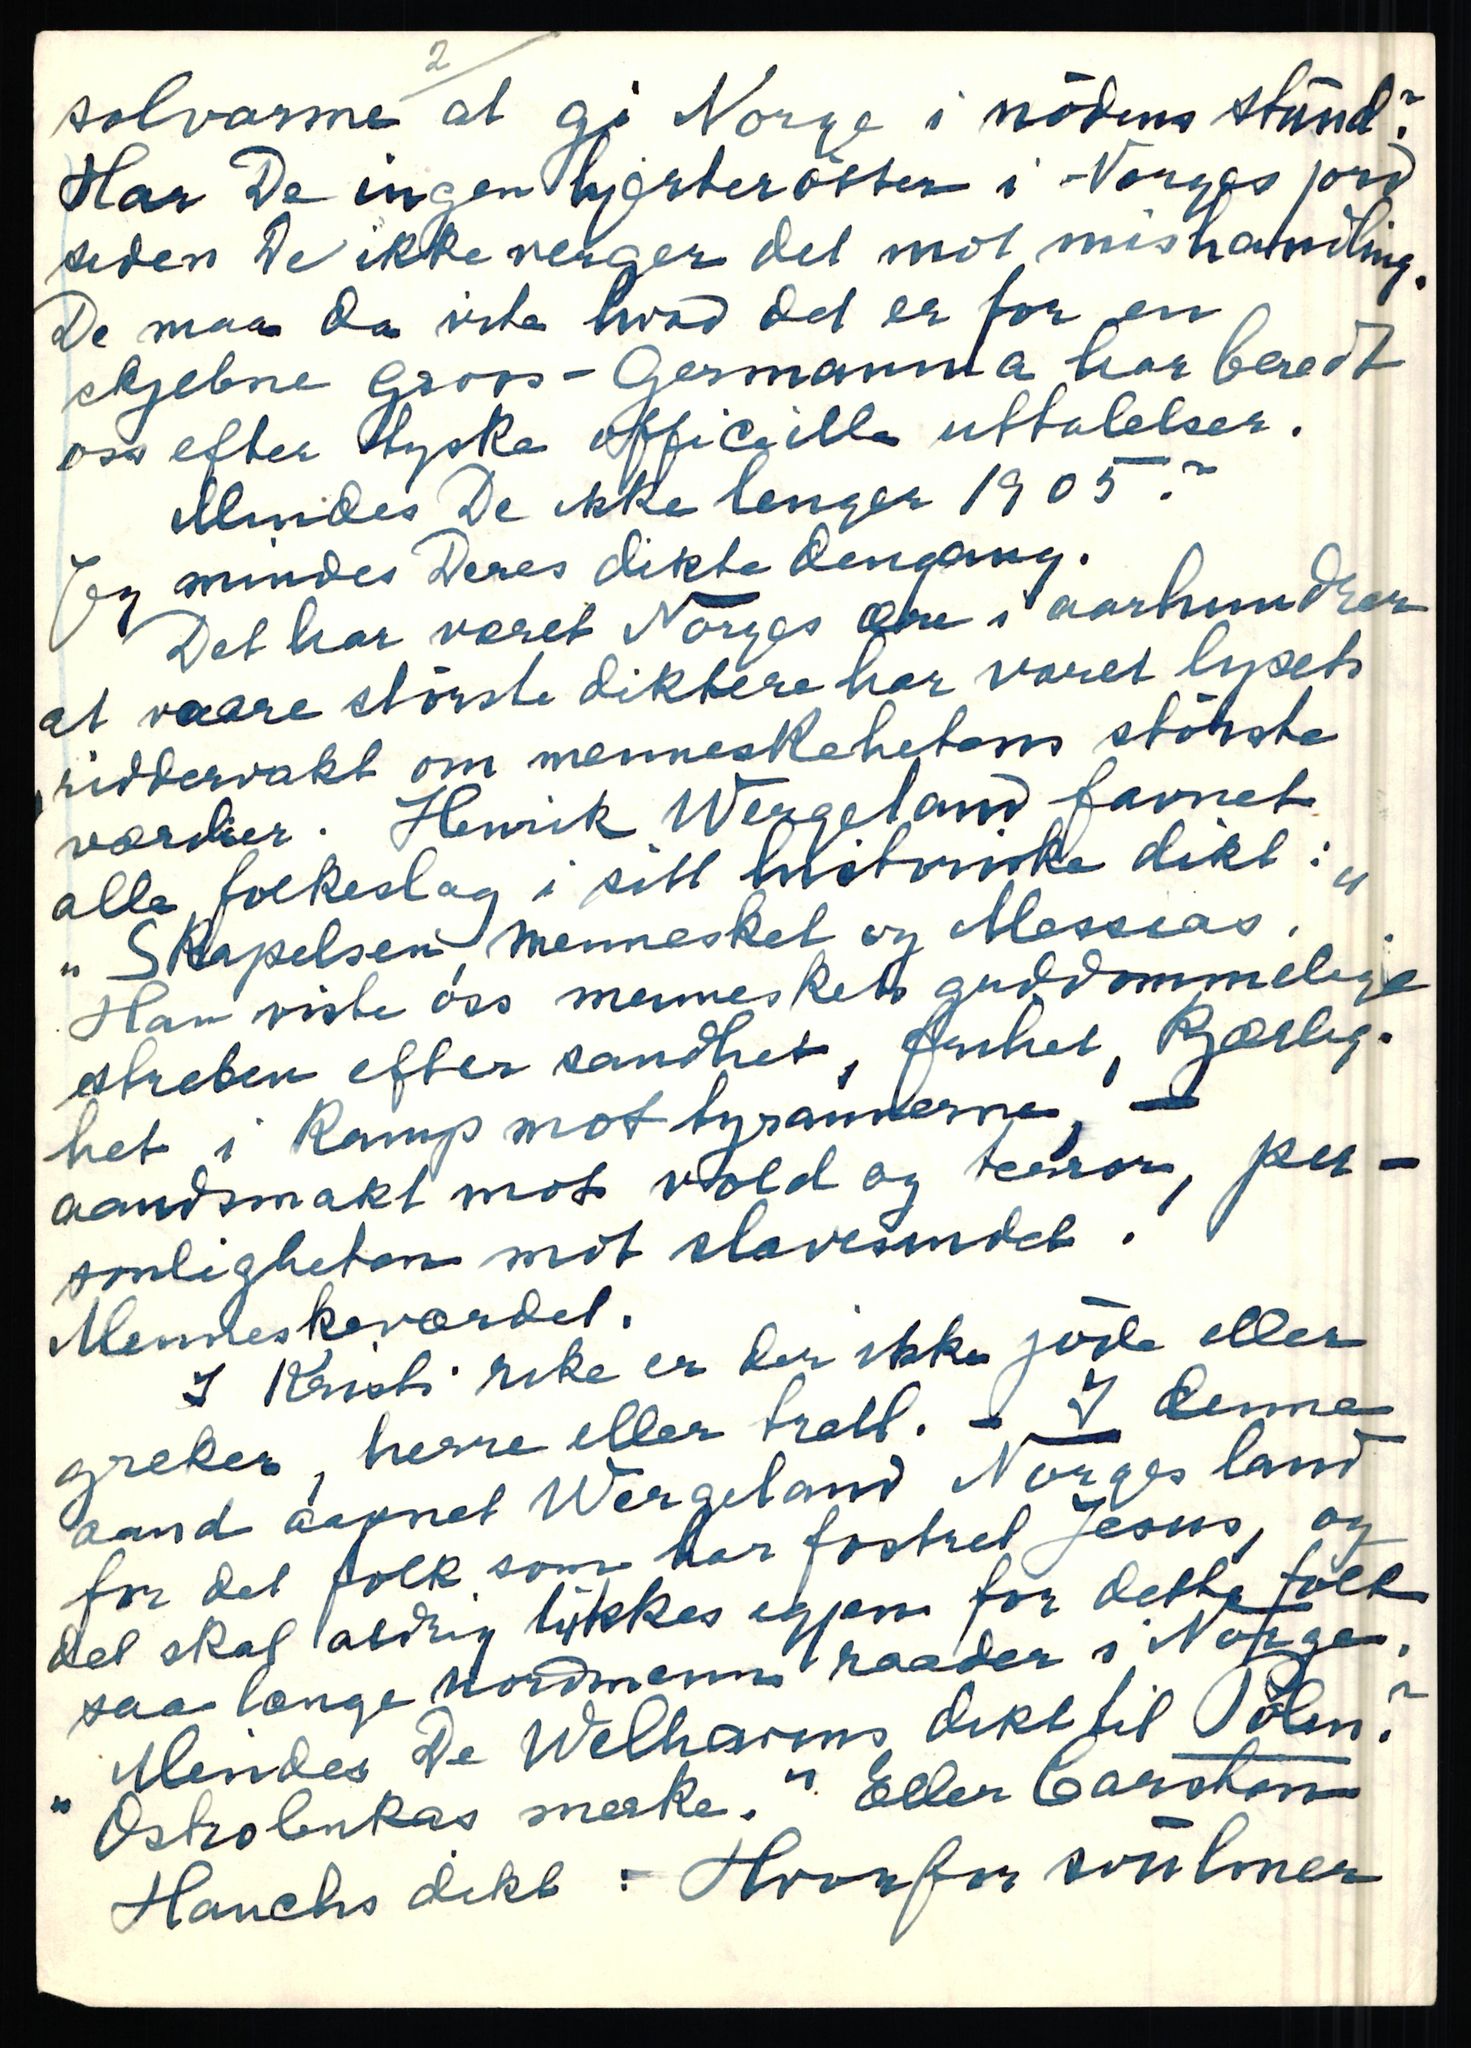 2
solvarme at gi Norge i nödens stund?
Har De ingen hjerterötter i Norges jord
siden De ikke verger det mot mishandling.
De maa da vite hvad det er for en
skjebne Groos-Germannia har beredt
oss efter tyske officielle uttalelser.
Mindes De ikke lenger 1905?
Jeg mindes Deres dikte dengang.
Det har været Norges ære i aarhundrer
at vaare störste diktere har været lysets
riddervakt om menneskehetens störste
værdier. Henrik Wergeland favnet
alle folkeslag i sitt historiske dikt:
"Skapelsen, mennesket og Messias."
Han viste oss menneskets guddommelige
streben efter sandhet, frihet, kjærlig-
het i kamp mot tyrannerne, –
aandsmakt mot vold og terror, per-
sonligheten mot slavesindet.
Menneskeværdet.
I Kristi rike er der ikke jöde eller
greker, herre eller trell. – I denne
aand aapnet Wergeland Norges land
for det folk som har fostret Jesus, og
det skal aldrig lukkes igjen for dette folk
saa lenge nordmenn raader i Norge.
Mindes De Welhavens dikt til Polen?
"Ostrolenkas merke." Eller Carsten
Hauchs dikt: – Hvorfor svulmer